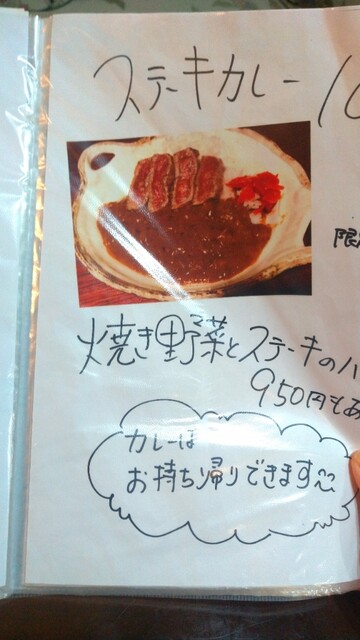 ステーキカレー
限
焼き野菜とステーキのハ
950円もあ
カレーは
お持ち帰りできます